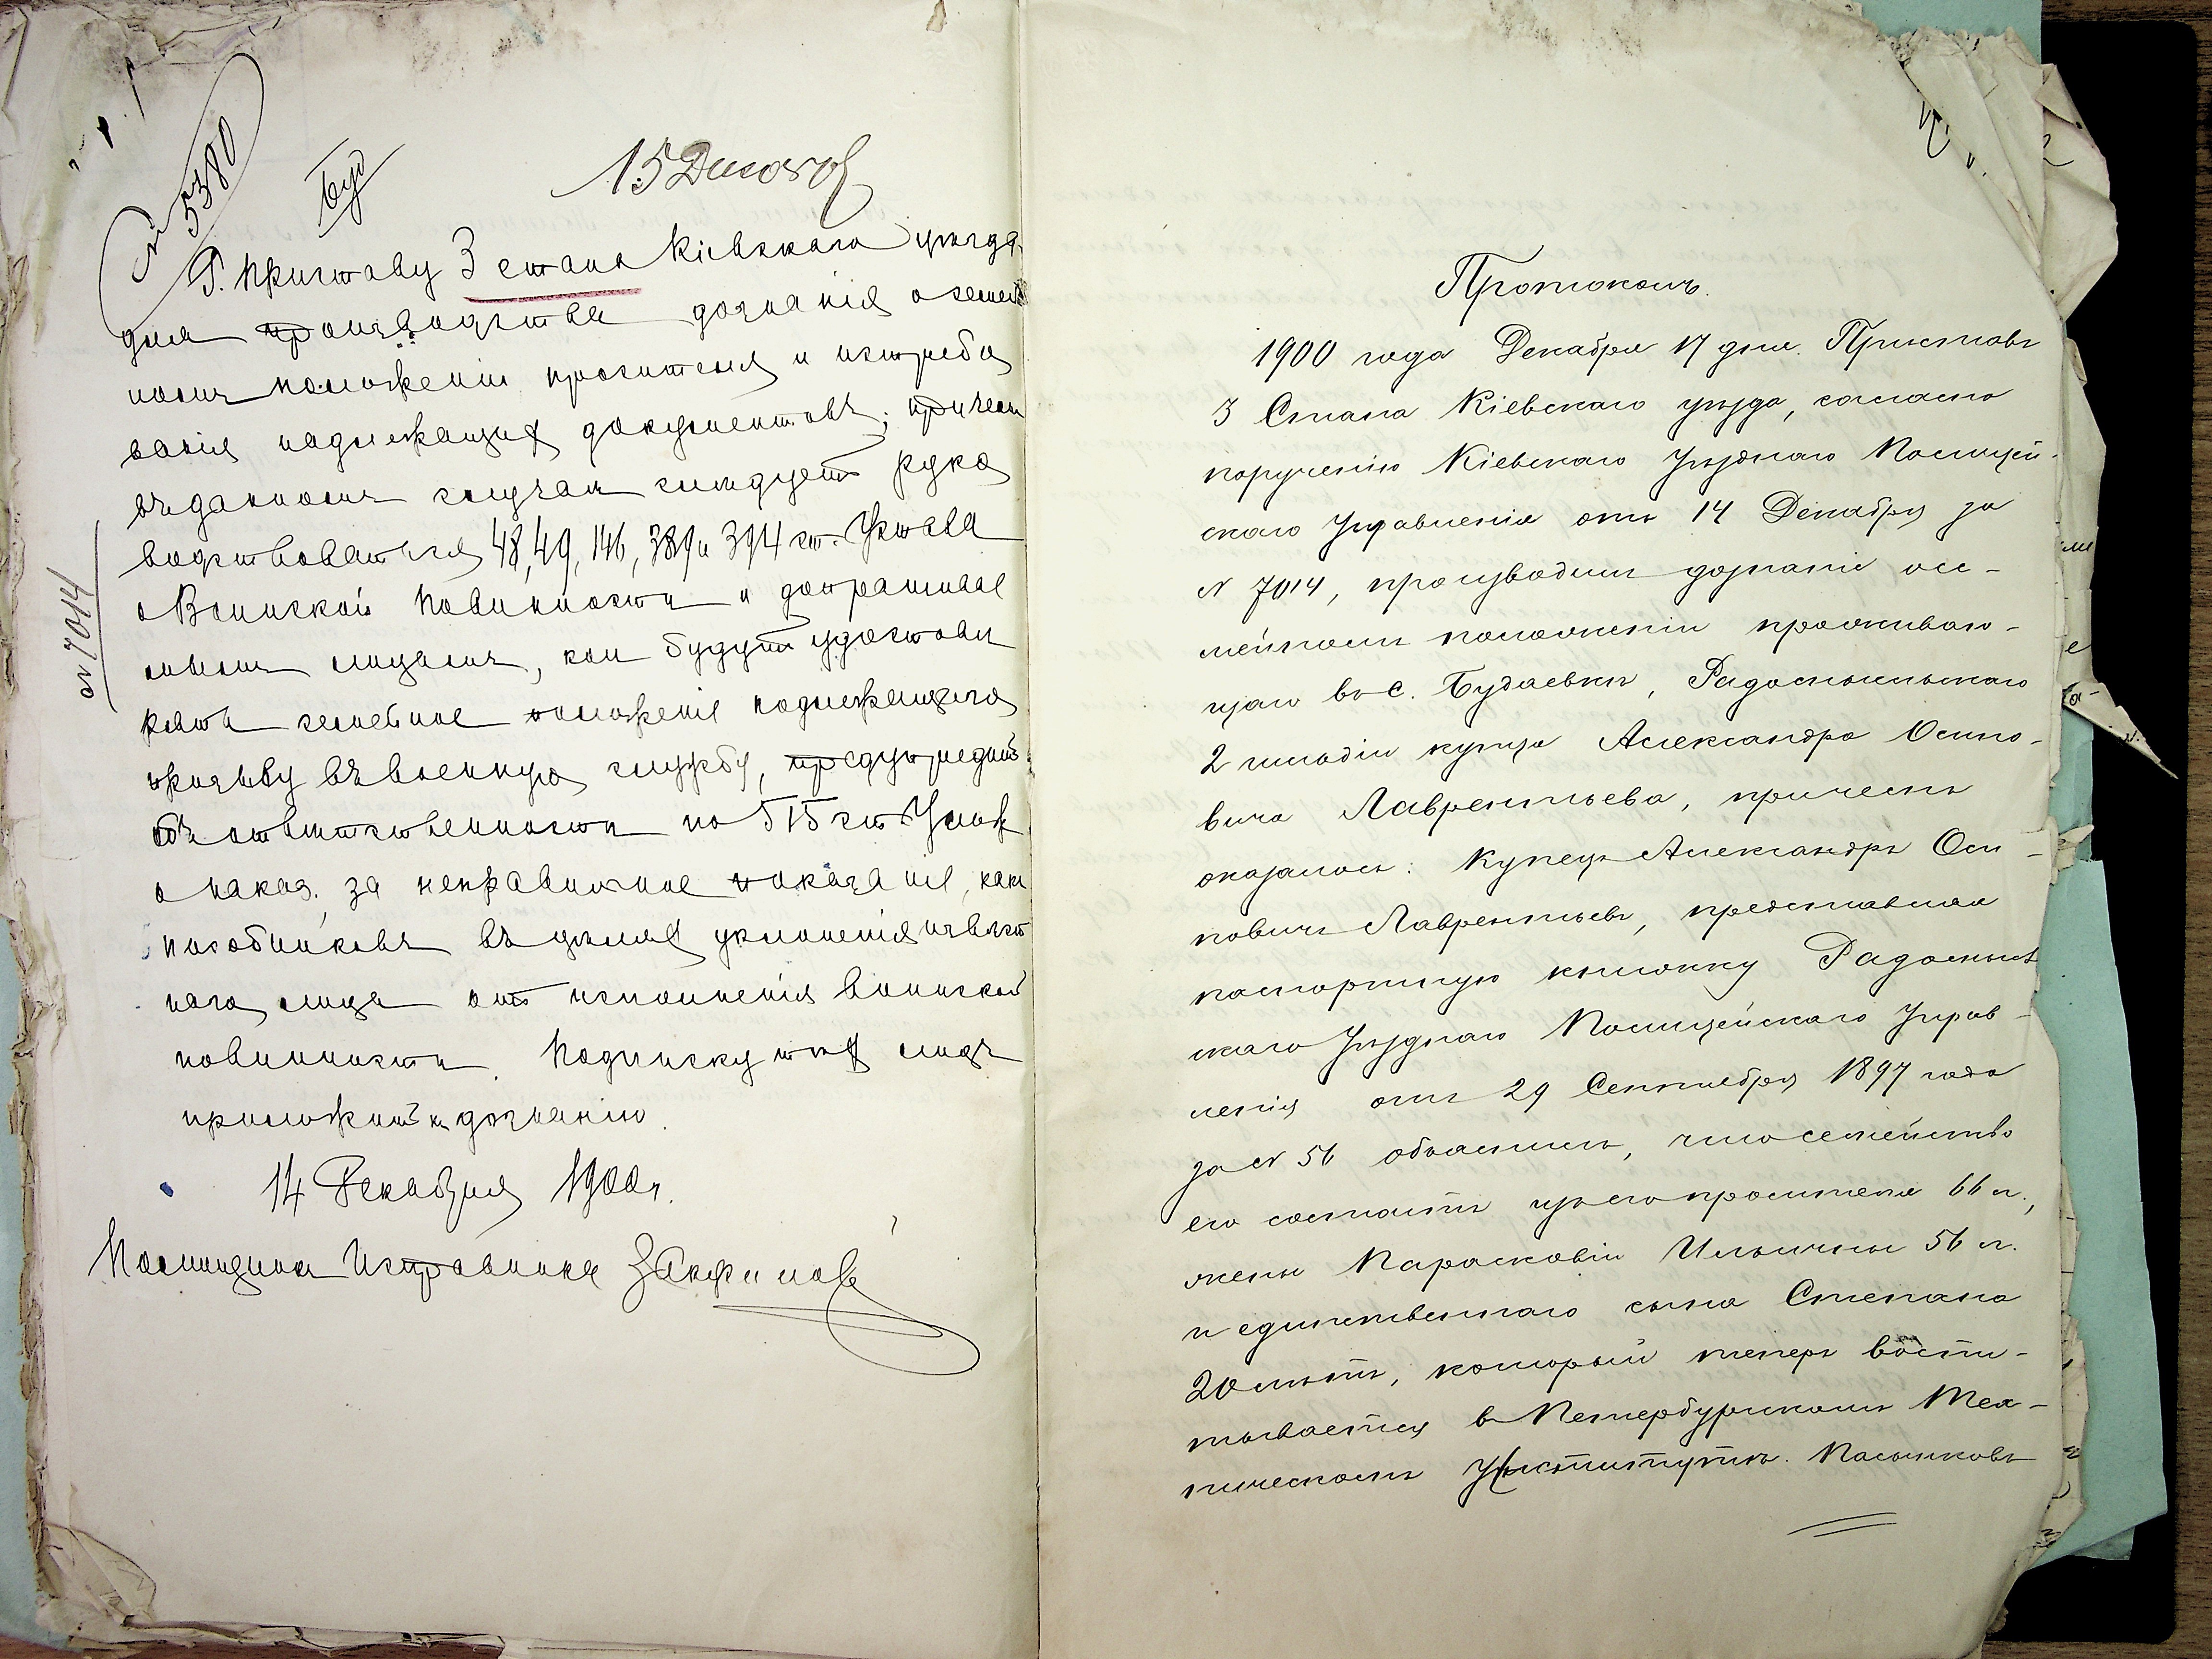 № 5380
буд
15 Декабря
Г. Приставу 3 стана Кіевскаго уѣзда
для производства дознанія о семей
номъ положеніи просителя и истребо
ванія надлежащихъ документовъ; причемъ
въ данномъ случаѣ слѣдуетъ руко
водствоваться 48, 49, 146, 389 и 394 ст. Устава
о Воинской повинности и допрашивае
мымъ лицамъ, кои будутъ удостовѣ
рять семейное положеніе подлежащаго
призыву въ военную службу, предупредить
объ отвѣтственности по 515 ст. Улож
о наказ. за неправильное показаніе, какъ
пособниковъ въ дѣлахъ уклоненія извѣст
наго лица отъ исполненія воинской
повинности. Подписку тѣхъ лицъ
приложить къ дознанію.
14 Декабря 1900 г.
Полиціи Исправника
№ 7014
Протоколъ.
1900 года Декабря 17 дня. Приставъ
3 Стана Кіевскаго уѣзда, согласно
порученію Кіевскаго Уѣзднаго Полицей-
скаго Управленія отъ 14 Декабря за
№ 7014, производилъ дознаніе о се-
мейномъ положеніи проживаю-
щаго въ с. Будаевкѣ, Радомысльскаго
2 гильдіи купца Александра Осипо-
вича Лаврентьева, причемъ
оказалось: Купецъ Александръ Оси-
повичъ Лаврентьевъ, представляя
паспортную книжку Радомысль
скаго Уѣзднаго Полицейскаго Управ-
ленія отъ 29 Сентября 1897 года
за № 56 объяснилъ, что семейство
его состоитъ изъ его просителя 66 л.,
жены Параскевіи Ильичны 56 л.
и единственнаго сына Степана
20 лѣтъ, который теперь воспи-
тывается в Петербургскомъ Тех-
ническомъ Институтѣ. Пасынковъ